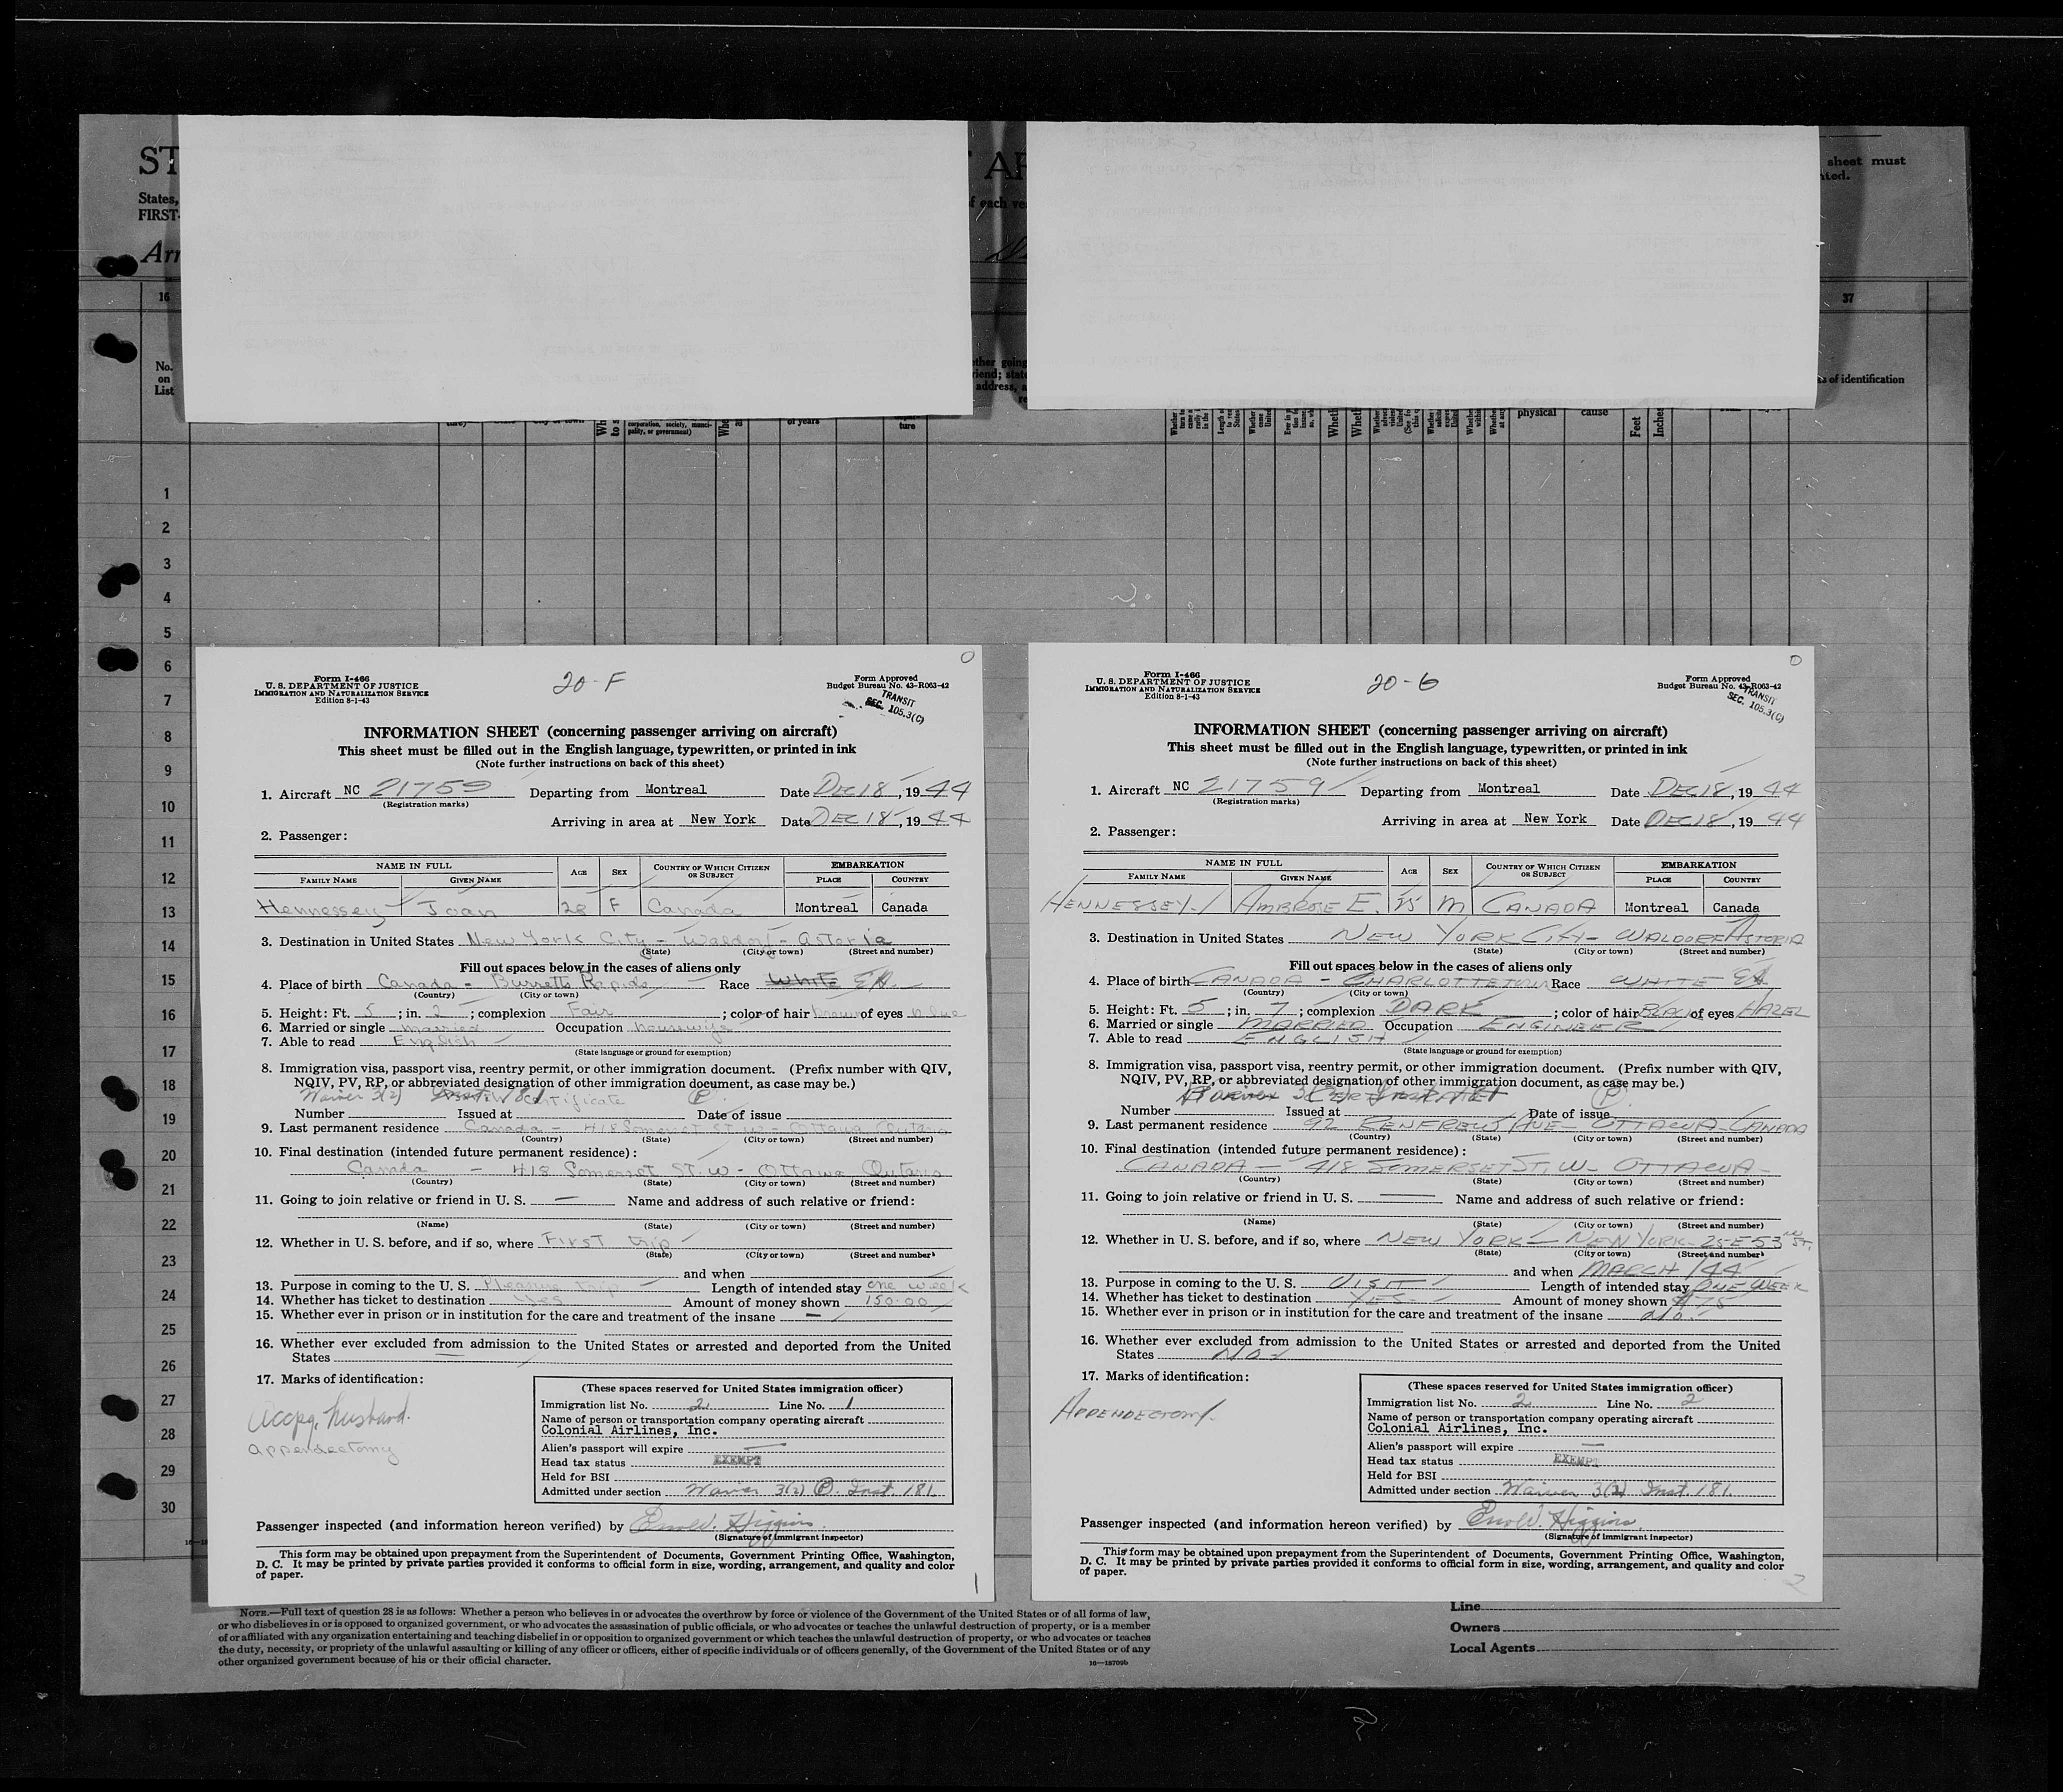 ST
AR
sheet must
States,
of each ve
FIRST-
Arr
16
37
No.
on
List
ther going
address, a
s of identification
physical
cause
Feet
Inches
corporation, society, munici-
pality, or government)
of years
ture
1
2
3
4
5
6
7
8
9
10
11
12
13
14
15
16
17
18
19
20
21
22
23
24
25
26
27
28
29
30
Form I-466
U. S. DEPARTMENT OF JUSTICE
IMMIGRATION AND NATURALIZATION SERVICE
Edition 8-1-43
20-F
Form Approved
Budget Bureau No. 43-R063-42
TRANSIT
SEC. 105.3(C)
INFORMATION SHEET (concerning passenger arriving on aircraft)
This sheet must be filled out in the English language, typewritten, or printed in ink
(Note further instructions on back of this sheet)
1. Aircraft NC 21759 Departing from Montreal Date DEC 18, 1944
(Registration marks)
Arriving in area at New York Date DEC 18, 1944
2. Passenger:
NAME IN FULL AGE SEX COUNTRY OF WHICH CITIZEN OR SUBJECT EMBARKATION
FAMILY NAME GIVEN NAME PLACE COUNTRY
Hennessey Joan 28 F Canada Montreal Canada
3. Destination in United States New York City - Waldorf - Astoria
(State) (City or town) (Street and number)
Fill out spaces below in the cases of aliens only
4. Place of birth Canada - Burretts Rapids Race White
(Country) (City or town)
5. Height: Ft. 5; in. 2; complexion Fair; color of hair brown of eyes blue
6. Married or single married Occupation housewife
7. Able to read English
(State language or ground for exemption)
8. Immigration visa, passport visa, reentry permit, or other immigration document. (Prefix number with QIV,
NQIV, PV, RP, or abbreviated designation of other immigration document, as case may be.)
Waiver 3(2) certificate P
Number Issued at Date of issue
9. Last permanent residence Canada - 418 Somerset St. W - Ottawa Ontario
(Country) (State) (City or town) (Street and number)
10. Final destination (intended future permanent residence):
Canada - 418 Somerset St. W - Ottawa Ontario
(Country) (State) (City or town) (Street and number)
11. Going to join relative or friend in U. S. — Name and address of such relative or friend:
(Name) (State) (City or town) (Street and number)
12. Whether in U. S. before, and if so, where First trip
(State) (City or town) (Street and number)
and when
13. Purpose in coming to the U. S. Pleasure trip Length of intended stay one week
14. Whether has ticket to destination Yes Amount of money shown 150.00
15. Whether ever in prison or in institution for the care and treatment of the insane —
16. Whether ever excluded from admission to the United States or arrested and deported from the United
States —
17. Marks of identification:
Accpg. husband.
appendectomy
(These spaces reserved for United States immigration officer)
Immigration list No. 2 Line No. 1
Name of person or transportation company operating aircraft
Colonial Airlines, Inc.
Alien's passport will expire —
Head tax status EXEMPT
Held for BSI
Admitted under section Waiver 3(2) P. Inst. 181.
Passenger inspected (and information hereon verified) by Higgins
(Signature of Immigrant Inspector)
This form may be obtained upon prepayment from the Superintendent of Documents, Government Printing Office, Washington,
D. C. It may be printed by private parties provided it conforms to official form in size, wording, arrangement, and quality and color
of paper.
1
Form I-466
U. S. DEPARTMENT OF JUSTICE
IMMIGRATION AND NATURALIZATION SERVICE
Edition 8-1-43
20-G
Form Approved
Budget Bureau No. 43-R063-42
TRANSIT
SEC. 105.3(C)
INFORMATION SHEET (concerning passenger arriving on aircraft)
This sheet must be filled out in the English language, typewritten, or printed in ink
(Note further instructions on back of this sheet)
1. Aircraft NC 21759 Departing from Montreal Date DEC 18, 1944
(Registration marks)
Arriving in area at New York Date DEC 18, 1944
2. Passenger:
NAME IN FULL AGE SEX COUNTRY OF WHICH CITIZEN OR SUBJECT EMBARKATION
FAMILY NAME GIVEN NAME PLACE COUNTRY
HENNESSEY AMBROSE E. M CANADA Montreal Canada
3. Destination in United States NEW YORK CITY - WALDORF ASTORIA
(State) (City or town) (Street and number)
Fill out spaces below in the cases of aliens only
4. Place of birth CANADA - CHARLOTTETOWN Race WHITE
(Country) (City or town)
5. Height: Ft. 5; in. 7; complexion DARK; color of hair BLACK of eyes HAZEL
6. Married or single MARRIED Occupation ENGINEER
7. Able to read ENGLISH
(State language or ground for exemption)
8. Immigration visa, passport visa, reentry permit, or other immigration document. (Prefix number with QIV,
NQIV, PV, RP, or abbreviated designation of other immigration document, as case may be.)
P
Number Issued at Date of issue
9. Last permanent residence 92 RENFREW AVE - OTTAWA - CANADA
(Country) (State) (City or town) (Street and number)
10. Final destination (intended future permanent residence):
CANADA - 418 SOMERSET ST. W - OTTAWA -
(Country) (State) (City or town) (Street and number)
11. Going to join relative or friend in U. S. — Name and address of such relative or friend:
(Name) (State) (City or town) (Street and number)
12. Whether in U. S. before, and if so, where NEW YORK - NEW YORK - 25-E-53RD ST.
(State) (City or town) (Street and number)
and when MARCH /44
13. Purpose in coming to the U. S. VISIT Length of intended stay ONE WEEK
14. Whether has ticket to destination YES Amount of money shown $75
15. Whether ever in prison or in institution for the care and treatment of the insane No.
16. Whether ever excluded from admission to the United States or arrested and deported from the United
States NO
17. Marks of identification:
APPENDECTOMY.
(These spaces reserved for United States immigration officer)
Immigration list No. 2 Line No. 2
Name of person or transportation company operating aircraft
Colonial Airlines, Inc.
Alien's passport will expire —
Head tax status EXEMPT
Held for BSI
Admitted under section Waiver 3(2) Inst. 181.
Passenger inspected (and information hereon verified) by Higgins
(Signature of Immigrant Inspector)
This form may be obtained upon prepayment from the Superintendent of Documents, Government Printing Office, Washington,
D. C. It may be printed by private parties provided it conforms to official form in size, wording, arrangement, and quality and color
of paper.
2
NOTE.—Full text of question 28 is as follows: Whether a person who believes in or advocates the overthrow by force or violence of the Government of the United States or of all forms of law,
or who disbelieves in or is opposed to organized government, or who advocates the assassination of public officials, or who advocates or teaches the unlawful destruction of property, or is a member
of or affiliated with any organization entertaining and teaching disbelief in or opposition to organized government or which teaches the unlawful destruction of property, or who advocates or teaches
the duty, necessity, or propriety of the unlawful assaulting or killing of any officer or officers, either of specific individuals or of officers generally, of the Government of the United States or of any
other organized government because of his or their official character.
16—18709b
Line
Owners
Local Agents